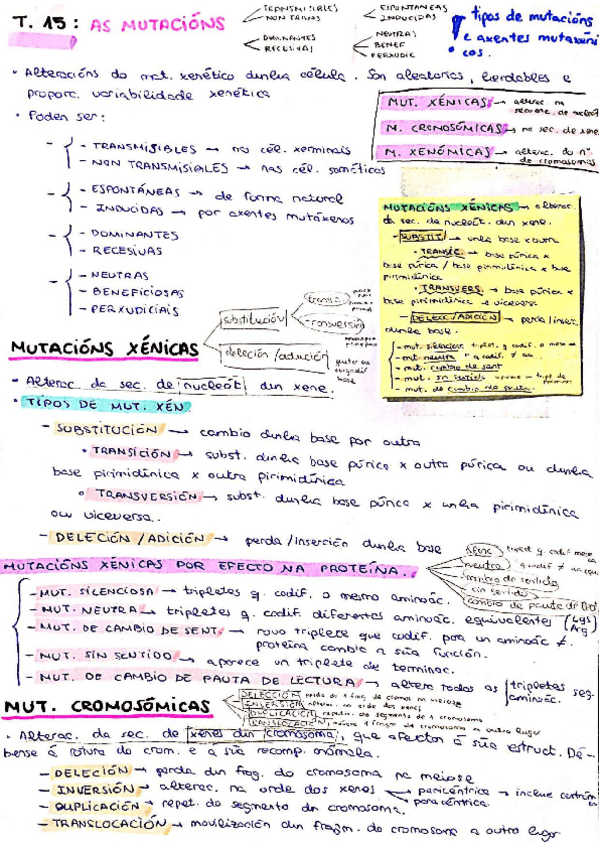 T. 15: AS MUTACIÓNS
TRANSMISIBLES
NON TRANS
DOMINANTES
RECESIVAS
ESPONTANEAS
INDUCIDAS
NEUTRAS
BENEF
PERXUDIC
tipos de mutacións
e axentes mutaxéni
cos.
· Alteracións do mat. xenético dunha célula. Son aleatorias, herdables e
proporc. variabilidade xenética
· Poden ser:
- TRANSMISIBLES → no cél. xerminais
- NON TRANSMISIBLES → nas cél. somáticas
- ESPONTÁNEAS → de forma natural
- INDUCIDAS → por axentes mutáxenos
- DOMINANTES
- RECESIVAS
- NEUTRAS
- BENEFICIOSAS
- PERXUDICIAIS
MUT. XÉNICAS → alterac. na
secuenc. de nucleót
M. CROMOSÓMICAS → na sec. de xene
M. XENÓMICAS → alterac. do nº
de cromosomas
MUTACIÓNS XÉNICAS → alterac
da sec. de nucleót. dun xene.
- SUBSTIT → unha base x outra
· TRANSIC. → base púrica x
base púrica / base pirimidínica x base
pirimidínica
· TRANSVERS. → base púrica x
base pirimidínica e viceversa
- DELEC/ADICIÓN → perda/inserc.
dunha base.
- mut. silenciosa triplet. q codif. o mesmo
- mut. neutra " q codif. ≠ aa
- mut. cambio de sent
- mut. sin sentido
- mut. de cambio de pauta
MUTACIÓNS XÉNICAS
substitución
transic.
transversión
deleción/adición
base
- Alterac. da sec. de nucleót dun xene.
· TIPOS DE MUT. XÉN.
- SUBSTITUCIÓN → cambio dunha base por outra
· TRANSICIÓN → subst. dunha base púrica x outra púrica ou dunha
base pirimidínica x outra pirimidínica
· TRANSVERSIÓN → subst. dunha base púrica x unha pirimidínica
ou viceversa..
- DELECIÓN / ADICIÓN → perda / inserción dunha base
MUTACIÓNS XÉNICAS POR EFECTO NA PROTEÍNA.
neutra
cambio de sentido
sin sentido
cambio de pauta
- MUT. SILENCIOSA → tripletes q. codif. o mesmo aminoác.
- MUT. NEUTRA → tripletes q. codif. diferentes aminoác. equivalentes (Lys Arg)
- MUT. DE CAMBIO DE SENT → novo triplete que codif. para un aminoác ≠.
proteína cambia a súa función.
- MUT. SIN SENTIDO → aparece un triplete de terminac.
- MUT. DE CAMBIO DE PAUTA DE LECTURA → altera todos os tripletes seg.
aminoác.
MUT. CROMOSÓMICAS
DELECCIÓN perda do 1 frag. de cromos na meiose
INVERSIÓN alterac. na orde dos xenes
DUPLICACIÓN repetic. do segmento dn cromosoma
TRANSLOCACIÓN
· Alterac. da sec. de xenes dun cromosoma, que afectan á súa estruct. Dé-
bense á rotura do crom. e a súa recomp. anómala.
- DELECIÓN → perda dun frag. do cromosoma na meiose
- INVERSIÓN → alterac. na orde dos xenes → pericéntrica → inclue centróm
paracéntrica.
- DUPLICACIÓN → repet. do segmento dn cromosoma.
- TRANSLOCACIÓN → movilización dun fragm. do cromosoma a outro lugar